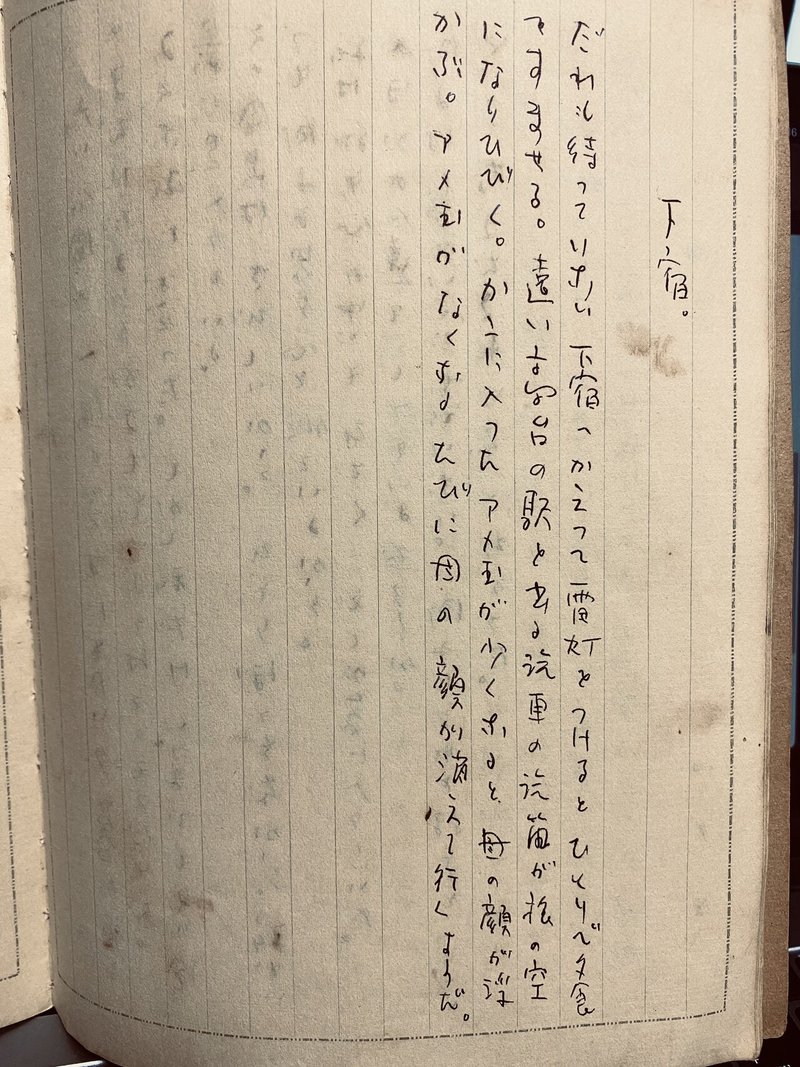 下宿。
だれも待っていない下宿へかえって電灯をつけるとひとりで夕食
をすませる。遠い台の駅を出る汽車の汽笛がの空
になりひびく。かんに入ったアメ玉が少くなると、母の顔が浮
かぶ。アメ玉がなくなるたびに母の顔が消えて行くようだ。